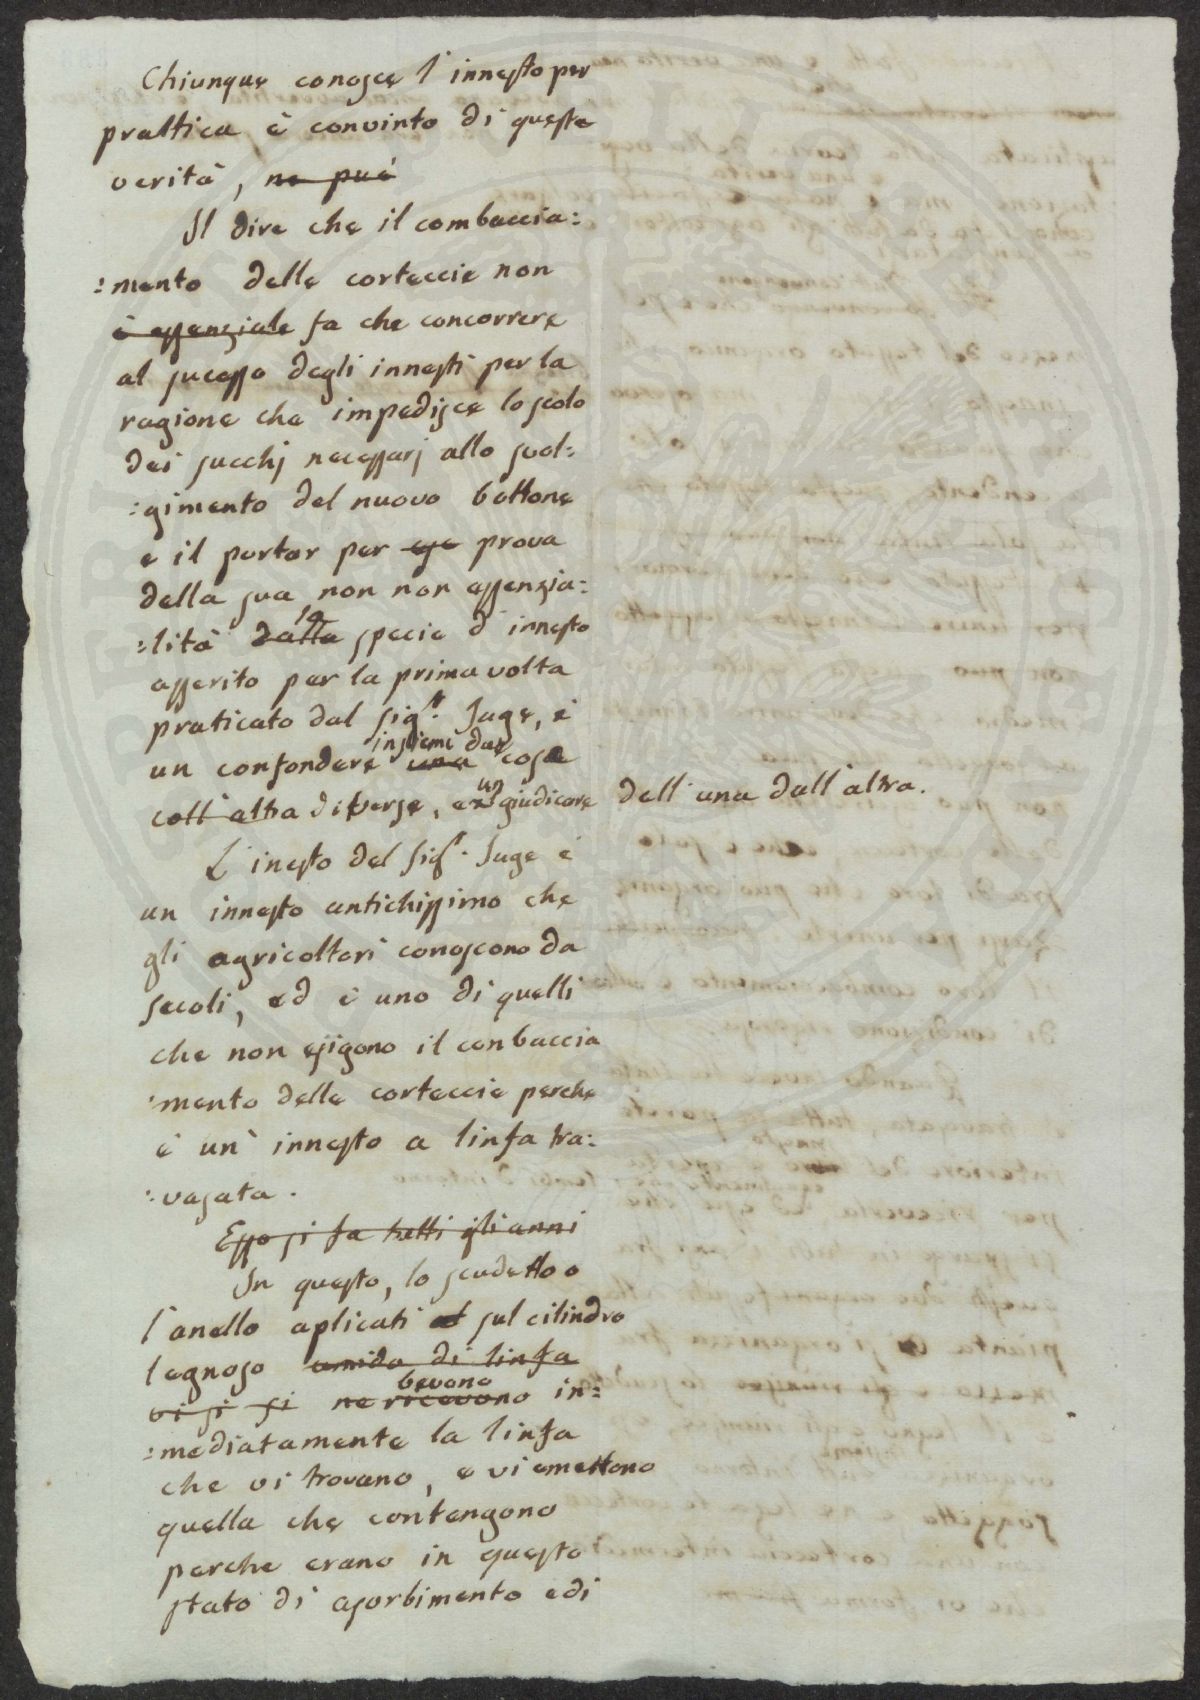 Chiunque conosce l'innesto per
prattica è convinto di questa
verità, ne può
Il dire che il combaccia:
:mento delle corteccie non
è essenziale fa che concorrere
al sucesso degli innesti per la
ragione che impedisce lo scolo
dei succhj necessarj allo svol:
:gimento del nuovo bottone
e il portar per prova
della sua non non essenzia:
la
:lità dalla specie d'innesto
asserito per la prima volta
praticato dal Sigr. Juge, è
insieme due
un confondere una cosa
un
coll'altra diverse, giudicare dell'una dall'altra.
L'inesto del Sigr. Juge è
un innesto antichissimo che
gli agricoltori conoscono da
secoli, ed è uno di quelli
che non esigono il conbaccia
:mento delle corteccie perche
è un' innesto a linfa tra:
:vasata.
Esso si fa tutti gli anni
In questo, lo scudetto o
l'anello aplicati al sul cilindro
legnoso umido di linfa
bevono
vi si si ne ricevono in:
:mediatamente la linfa
che vi trovano, e vi emettono
quella che contengono
perche erano in questo
stato di asorbimento e di